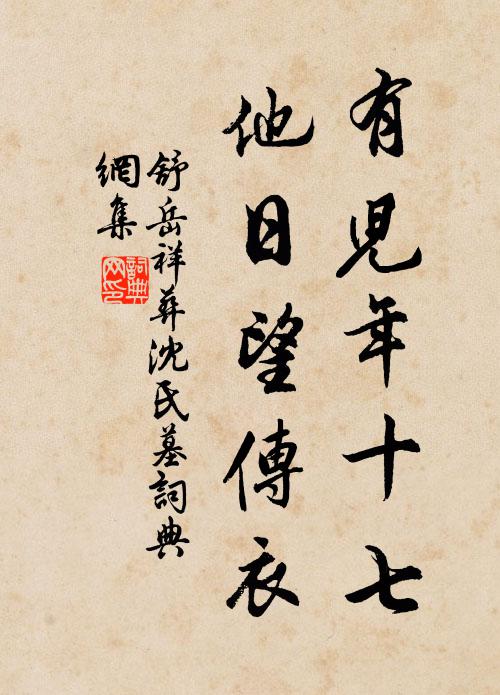 有兒年十七
他日望傳衣
舒岳祥葬沈氏墓詞典
網集
詞典
网印